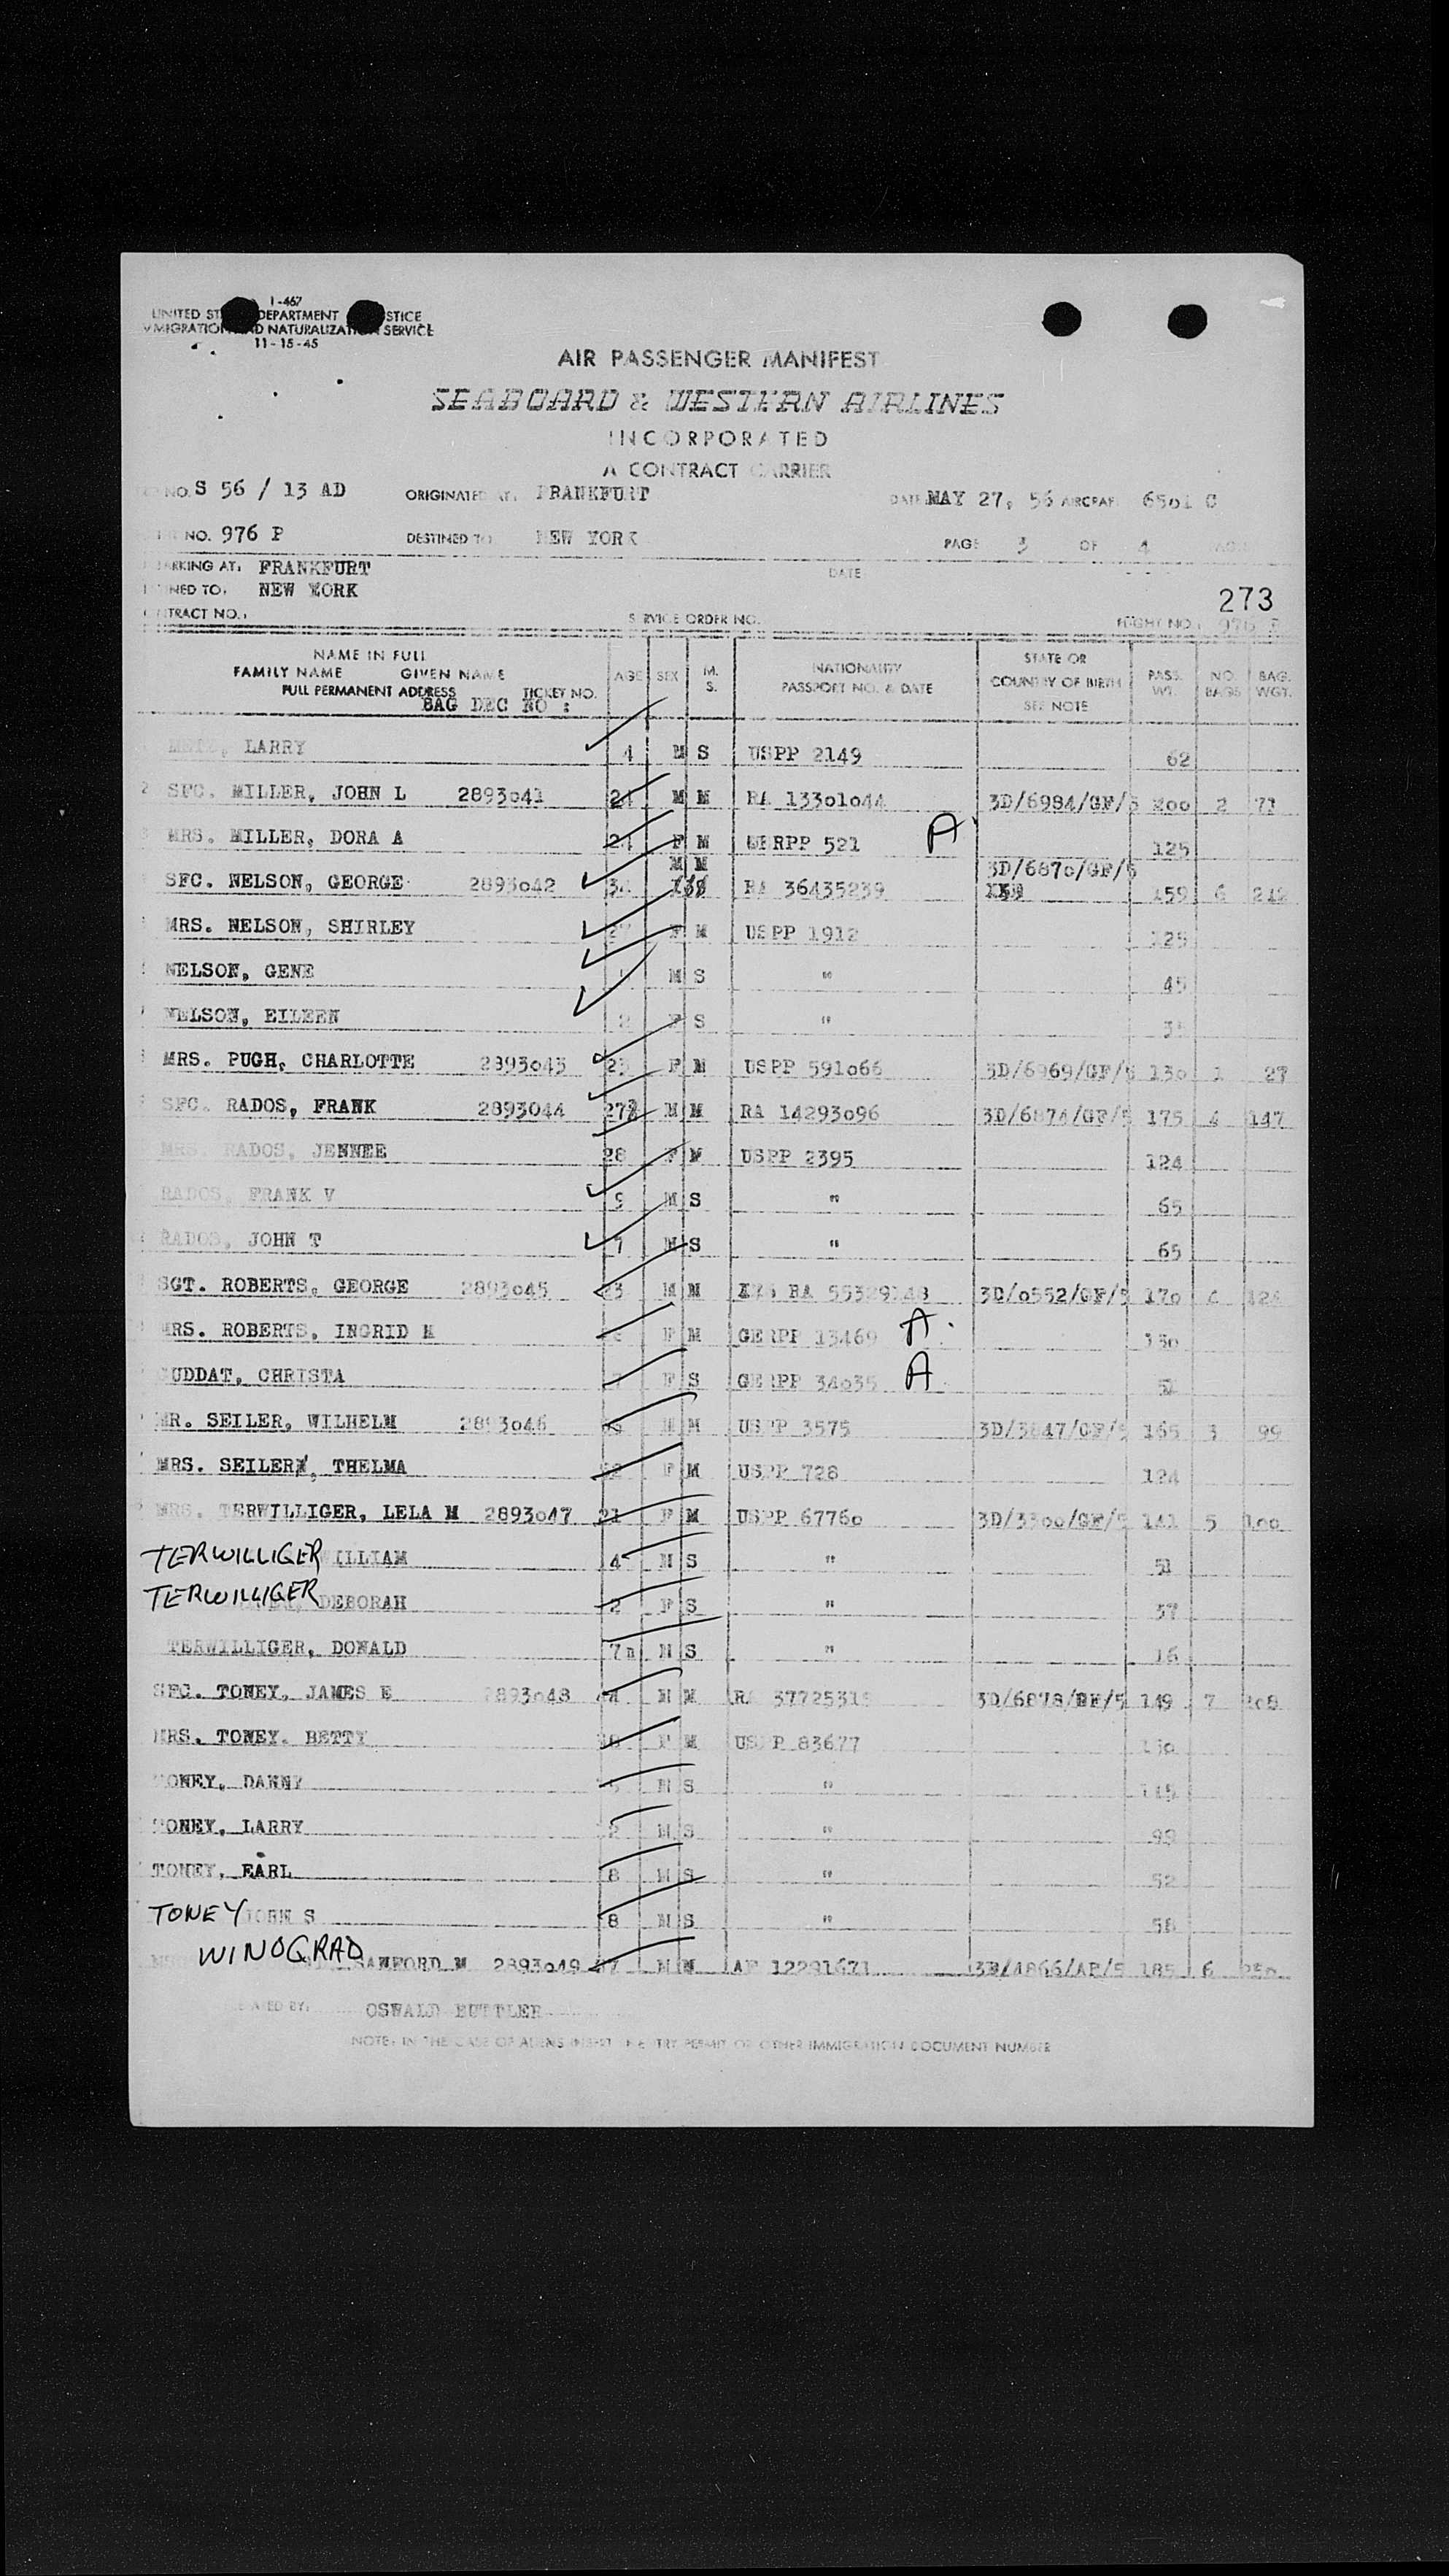 I-467
UNITED ST DEPARTMENT STICE
MIGRATION ND NATURALIZAT SERVICE
11-15-45
AIR PASSENGER MANIFEST
SEABOARD & WESTERN AIRLINES
INCORPORATED
A CONTRACT CARRIER
NO. S 56 / 13 AD ORIGINATED AT. FRANKFURT DATE MAY 27, 56 AIRCRAF 6501 C
NO. 976 P DESTINED TO NEW YORK PAGE 3 OF 4
ARKING AT. FRANKFURT DATE
INED TO. NEW YORK 273
TRACT NO. SERVICE ORDER NO. FLIGHT NO. 976 P
NAME IN FULL AGE SEX M. S. NATIONALITY STATE OR PASS. NO. BAG.
FAMILY NAME GIVEN NAME PASSPORT NO. & DATE COUNTRY OF BIRTH WT. BAGS WGT.
FULL PERMANENT ADDRESS TICKET NO. SEE NOTE
BAG DEC NO :
LARRY 4 M S USPP 2149 62
2 SFC. MILLER, JOHN L 2893o41 24 M M RA 133o1o44 3D/6984/GF/5 2oo 2 71
MRS. MILLER, DORA A 24 F M GERPP 521 A 125
M M 3D/687o/GF/5
SFC. NELSON, GEORGE 2893o42 34 RA 36435239 159 6 242
MRS. NELSON, SHIRLEY F M USPP 1912 125
NELSON, GENE M S " 45
NELSON, EILEEN 2 F S "
MRS. PUGH, CHARLOTTE 2893o43 F M USPP 591o66 3D/6969/GF/5 13o 1 27
SFC. RADOS, FRANK 2893044 M M RA 14293o96 3D/6874/GF/5 175 4 147
MRS. RADOS, JENNEE 28 F M USPP 2395 124
RADOS, FRANK V 9 M S " 65
RADOS, JOHN T 7 M S " 65
SGT. ROBERTS, GEORGE 2893o45 M M RA 3D/o552/GF/5 17o
MRS. ROBERTS, INGRID M F M GERPP 13469 A 13o
UDDAT, CHRISTA F S GERPP 34o35 A 51
MR. SEILER, WILHELM 2893o46 M M USPP 3575 3D/3847/GF/5 165 3 99
MRS. SEILER, THELMA F M USPP 728 124
MRS. TERWILLIGER, LELA M 2893o47 21 F M USPP 6776o 3D/33oo/GF/5 141 5 1oo
TERWILLIGER ILLIAM 4 M S " 51
TERWILLIGER DEBORAH 2 F S " 37
TERWILLIGER, DONALD 7m M S " 16
SFC. TONEY, JAMES E 2893o48 M M RA 3772531 3D/6878/GF/5 149 7
MRS. TONEY. BETTY F M USPP 83677
TONEY, DANNY M S "
TONEY, LARRY M S " 99
TONEY, EARL 8 M S " 52
TONEY JOHN S 8 M S " 58
WINOGRAD
SANFORD M 2893o49 M M AF 12291671 3D/4866/AF/5 185 6 25o
OSWALD BUTTLER
NOTE: IN THE CASE OF ALIENS INSERT RE ENTRY PERMIT OR OTHER IMMIGRATION DOCUMENT NUMBER